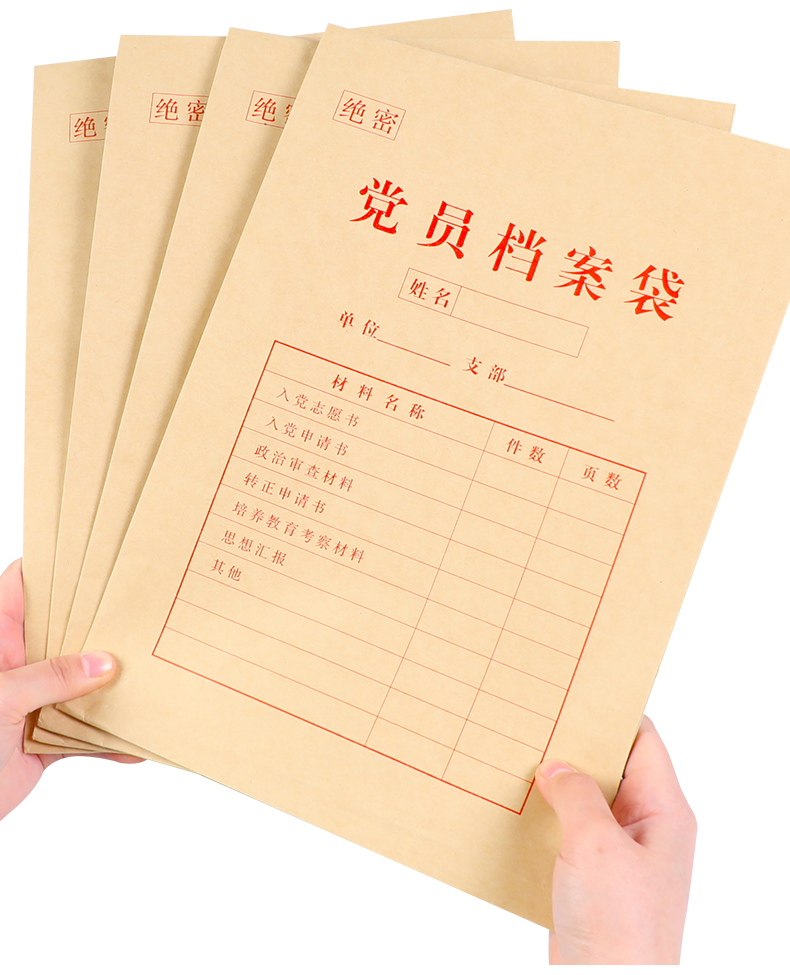 绝密
绝密
绝密
绝密
党员档案袋
姓名
单位 支部
材料名称 件数 页数
入党志愿书
入党申请书
政治审查材料
转正申请书
培养教育考察材料
思想汇报
其他